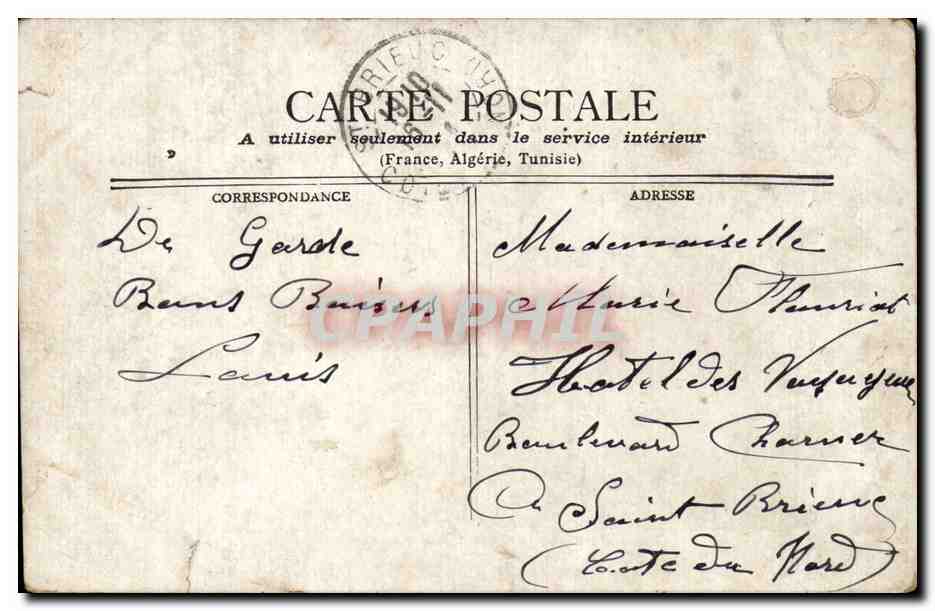 CARTE POSTALE
A utiliser seulement dans le service intérieur
(France, Algérie, Tunisie)
CORRESPONDANCE
De Garde
Bons Baisers
Louis
ADRESSE
Mademoiselle
Marie Fleuriot
Hotel des
Boulevard Charner
A Saint Brieuc
(Cote du Nord)
ST BRIEUC
CPAPHIL